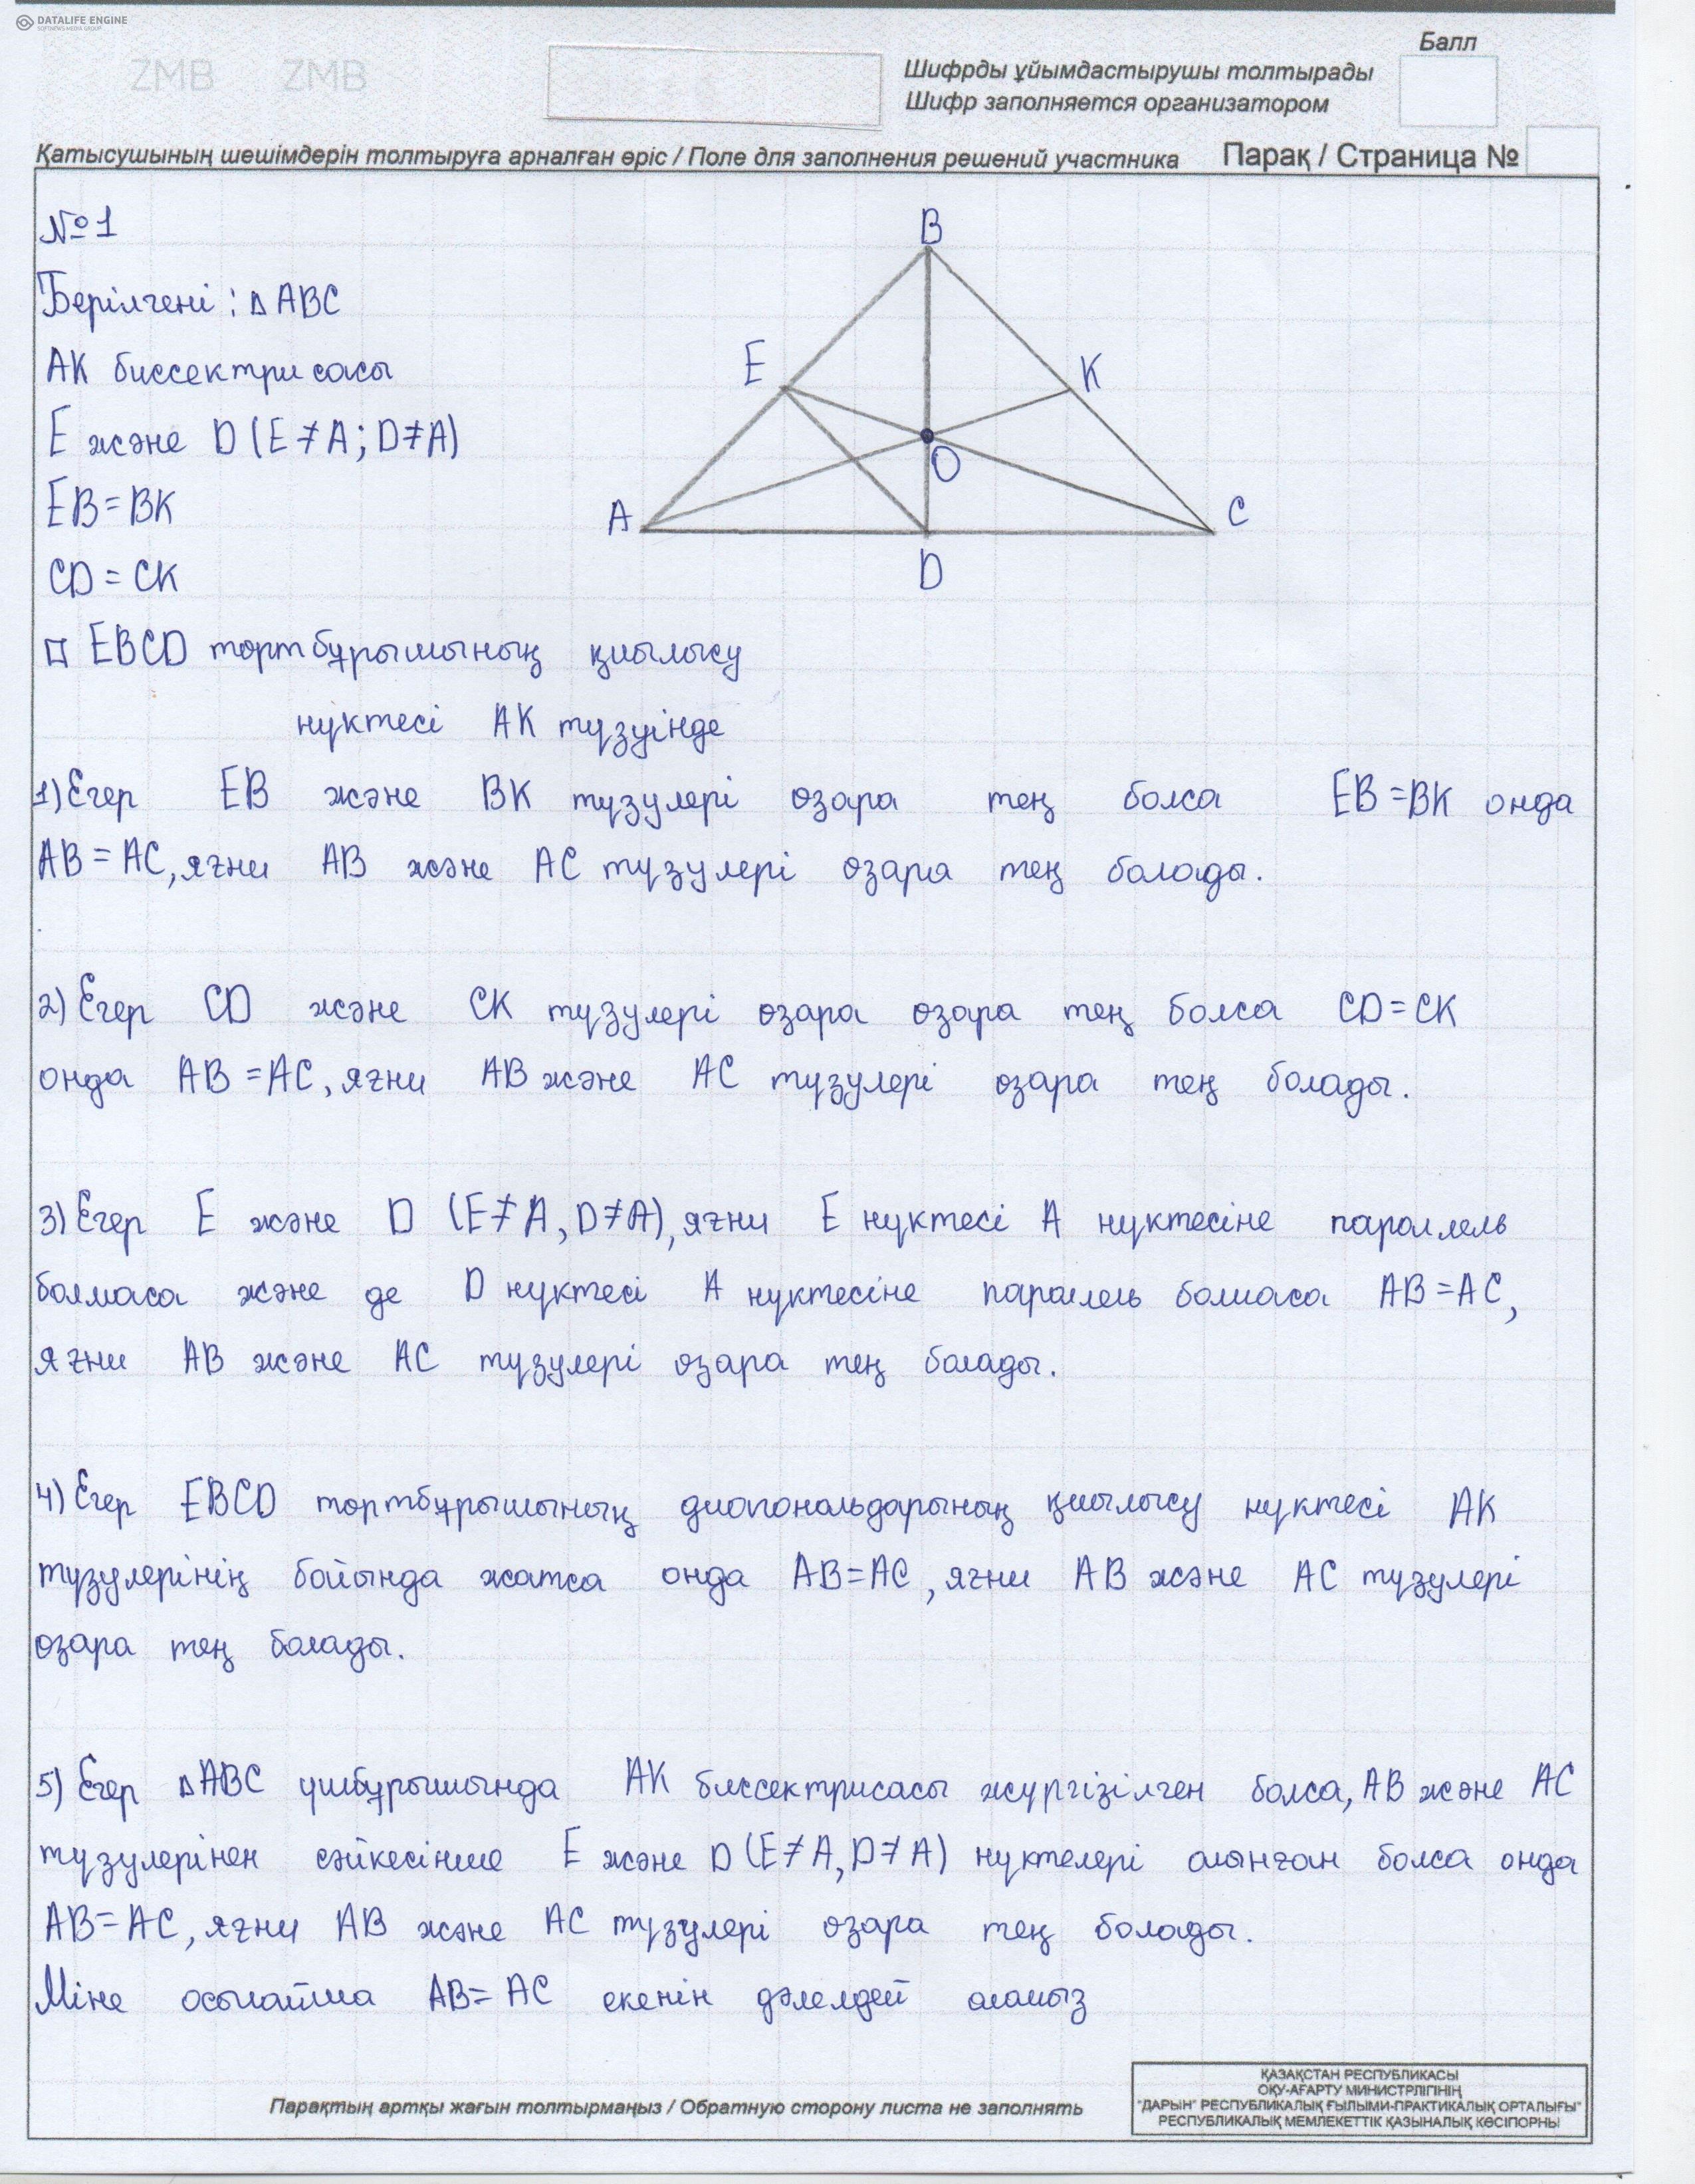 DATALIFE ENGINE
SOFTNEWS MEDIA GROUP
ZMB ZMB
Балл
Шифрды ұйымдастырушы толтырады
Шифр заполняется организатором
Қатысушының шешімдерін толтыруға арналған өріс / Поле для заполнения решений участника Парақ / Страница №
№1
Берілгені: △ABC
AK биссектрисасы
E және D (E≠A; D≠A)
EB=BK
CD=CK
□ EBCD төртбұрышының қиылысу
нүктесі AK түзуінде
B
E
K
O
A
C
D
1) Егер EB және BK түзулері өзара тең болса EB=BK онда
AB=AC, яғни AB және AC түзулері өзара тең болады.
2) Егер CD және CK түзулері өзара өзара тең болса CD=CK
онда AB=AC, яғни AB және AC түзулері өзара тең болады.
3) Егер E және D (E≠A, D≠A), яғни E нүктесі A нүктесіне параллель
болмаса және де D нүктесі A нүктесіне параллель болмаса AB=AC,
яғни AB және AC түзулері өзара тең болады.
4) Егер EBCD төртбұрышының диогональдарының қиылысу нүктесі AK
түзулерінің бойында жатса онда AB=AC, яғни AB және AC түзулері
өзара тең болады.
5) Егер △ABC үшбұрышында AK биссектрисасы жүргізілген болса, AB және AC
түзулерінен сәйкесінше E және D (E≠A, D≠A) нүктелері алынған болса онда
AB=AC, яғни AB және AC түзулері өзара тең болады.
Міне осылайша AB=AC екенін дәлелдей аламыз
Парақтың артқы жағын толтырмаңыз / Обратную сторону листа не заполнять
ҚАЗАҚСТАН РЕСПУБЛИКАСЫ
ОҚУ-АҒАРТУ МИНИСТРЛІГІНІҢ
"ДАРЫН" РЕСПУБЛИКАЛЫҚ ҒЫЛЫМИ-ПРАКТИКАЛЫҚ ОРТАЛЫҒЫ"
РЕСПУБЛИКАЛЫҚ МЕМЛЕКЕТТІК ҚАЗЫНАЛЫҚ КӘСІПОРНЫ